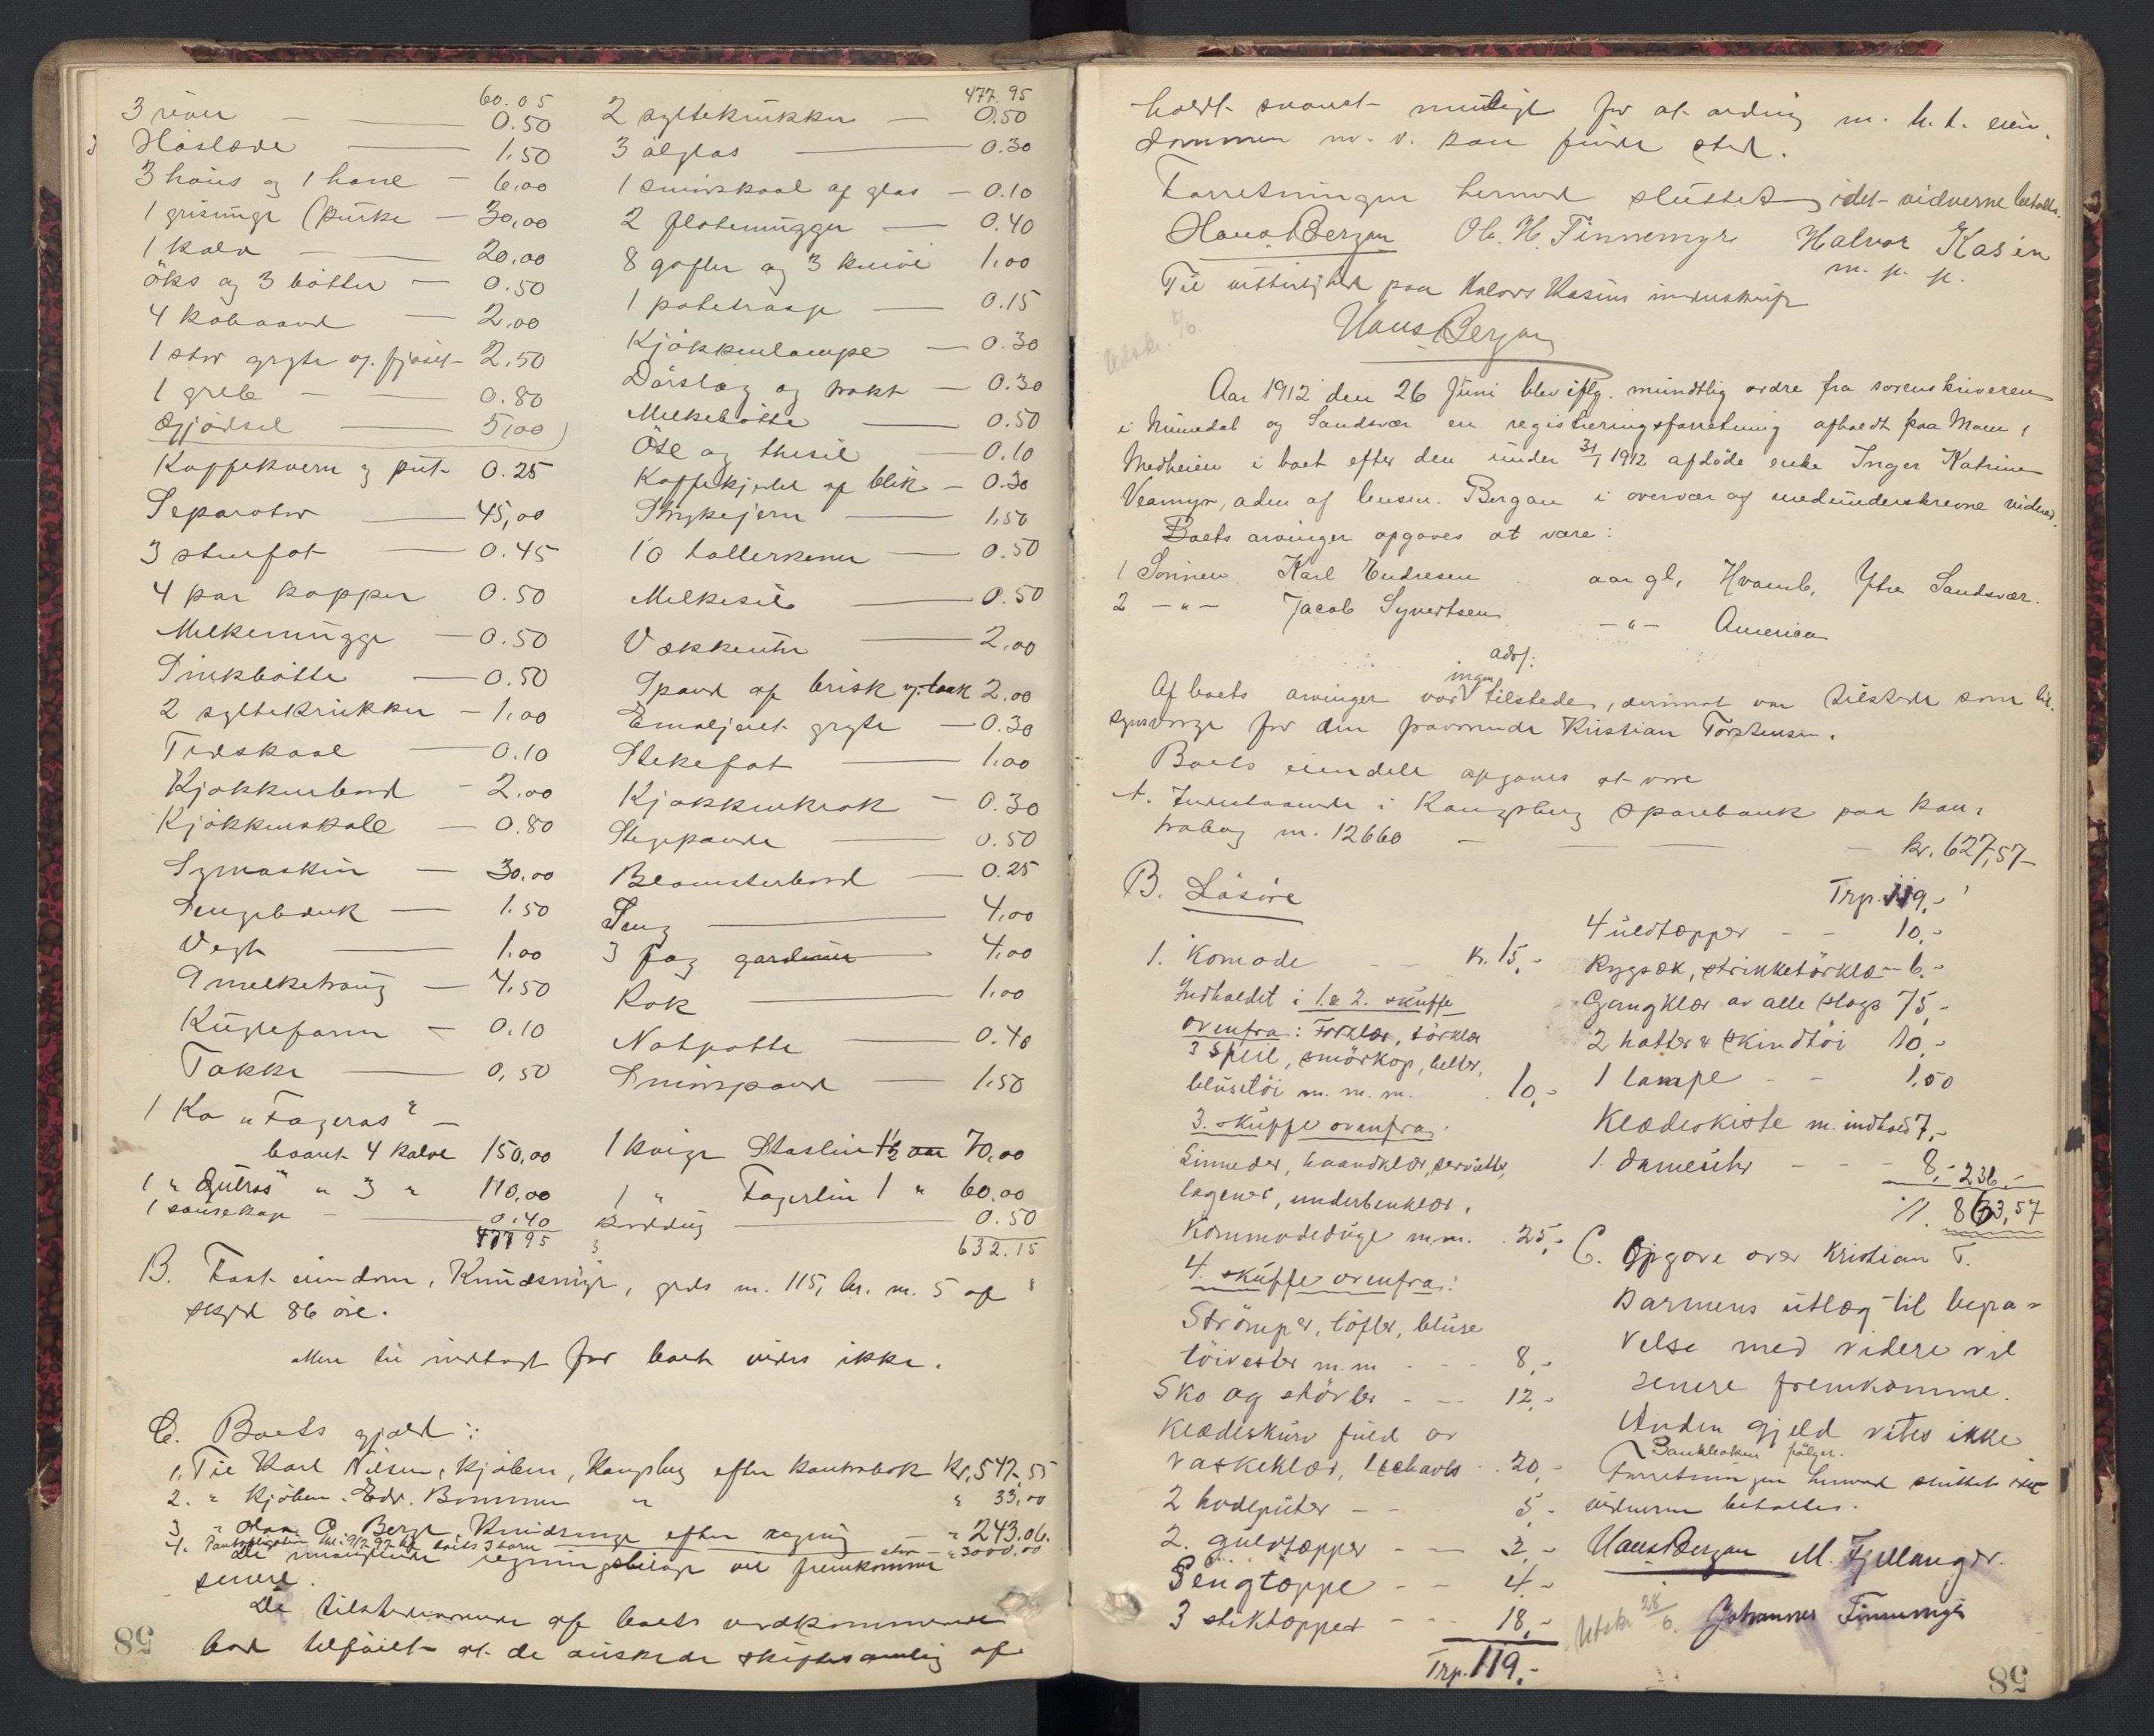 60.05
3 river — 0.50
Håslæde — 1,50
3 høns og 1 hane — 6,00
1 grisunge (purke — 30,00
1 kalv — 20,00
öks og 3 bötter — 0.50
4 kobaand — 2,00
1 stor gryte og. fjöset — 2.50
1 greb — 0.80
Gjödsel — 5,00
Kaffekvern og put 0.25
Separator — 45,00
3 stenfat — 0.45
4 par kopper 0.50
Melkemugge — 0.50
Sinkbötte — 0.50
2 syltekrukker — 1,00
Trdskaal — 0.10
Kjökkenbord — 2,00
Kjökkenskale — 0.80
Symaskin — 30.00
Sengebænk — 1.50
Vegt — 1,00
9 melketraug — 4,50
Kugleform — 0.10
Takke — 0,50
1 Ko "Fageros"
baaret 4 kalve 150,00
1 " Gulros" " 3 " 110,00
1 sausekop — 0.40
477 95
477.95
2 syltekrukker — 0.50
3 ölglas — 0.30
1 smörskaal af glas — 0.10
2 flötemugger — 0.40
8 gafler og 3 knive 1,00
1 potetrasp — 0.15
Kjökkenlampe — 0.30
Dörslag og trakt — 0.30
Melkebötte — 0.50
Öse og thesil — 0.10
Kaffekjedel af blik — 0.30
Strykejern — 1,50
10 tallerkener — 0.50
Melkesil — 0.50
Vækkeuhr — 2,00
Spand af brisk m. laak 2.00
Emaljeret gryte — 0.30
Stekefat — 1.00
Kjökkenkrak — 0.30
Stegepande — 0.50
Blomsterbord — 0.25
Seng — 4,00
3 fag gardiner — 4,00
Rok — 1,00
Natpotte — 0.40
Smörspand — 1,50
1 kvige Staslin 1½ aar 70,00
1 " Fagerlin 1 " 60.00
Borddug — 0.50
632.15
B. Fast eiendom, Knudsmyr, grds n. 115, br. n. 5 af
skyld 86 öre.
Mere til indtægt for boet vides ikke.
C. Boets gjæld:
1. Til Karl Nilsen, kjöbm, Kongsberg efter kontrabok Kr. 547,55
2. " kjöbm. Edv. Bommen " " 33,00
3 " Hans O. Berge, Knudsmyr efter regning — " 243.06.
4. Pantobligation til boets 3 barn — " 3000.00
De manglende regningsbilage vil fremkomme
senere.
De tilstedeværende af boets vedkommende
bad tilföiet at de önskede skiftesamling af-
58
holdt snarest mulig for at ordning m. h. t. eien-
dommen m. v. kan finde sted.
Forretningen hermed sluttet idet vidnerne betaltes.
Hans Bergan Ol. H. Finnemyr Halvor Kasin
m. p. p.
Til vitterlighed paa Halvor Kasins underskrift
Hans Bergan
Utskr.
Aar 1912 den 26 Juni blev iflg. mundtlig ordre fra sorenskriveren
i Numedal og Sandsvær en registreringsforretning afholdt paa Moen,
Medheien i boet efter den under 31/1 1912 afdöde enke Inger Katrine
Veamyr, aden af lensm. Bergan i overvær og medunderskrevne vidner.
Boets arvinger opgaves at være:
1 Sönnen Karl Endresen aar gl, Hvamb, Ytre Sandsvær.
2 — " — Jacob Syvertsen — " — America
adr:
Af boets arvinger var ingen tilstede, derimot var tilstede som til-
synsværge for den fraværende Kristian Torstensen.
Boets eiendele opgaves at være
A. Indestaaende i Kongsberg Sparebank paa kon-
trabog nr. 12660 — kr. 627,57
B. Lösöre
1. Komode — kr. 15,-
Indholdet i 1. & 2. skuffe
ovenfra: Forklær, törklær
3 speil, smörkop, belter,
blusetöi m. m. m. 10,-
3. skuffe ovenfra:
Linneder, haandklær, servietter,
lagener, underbenklær,
Kommodeduge m.m. 25,-
4. skuffe ovenfra:
Strömper, töfler, bluse
töivester m.m — 8,-
Sko og stövler — 12,-
Klædeskurv fuld av
vaskeklær, 20,-
2 hodeputer — 5,-
2. gulvtæpper — 2,-
Sengtæppe — 4,-
3 stiktæpper — 18,-
Trp. 119,-
Trp. 119,-
4 uldtæpper — 10,-
Rygsæk, strikketörklæ — 6,-
Gangklær av alle slags 75,-
2 hatter & skindtöi 10,-
1 lampe — 1,50
Klædeskiste m. indhold 7,-
1. dameuhr — 8,- 236,-
863,57
C. Opgave over Kristian T.
Darmens utlæg til begra-
velse med videre vil
senere fremkomme.
Anden gjeld vites ikke
Bankboken fölger.
Forretningen hermed sluttet idet
vidnerne betaltes.
Hans Bergan M. Fjellanger.
Utskr 28/6. Johannes Finnemyr
58